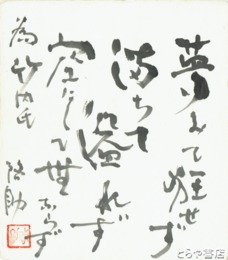 夢みて狂せず
満ちて溢れず
虚にして無ならず
為竹内氏
とらや書店